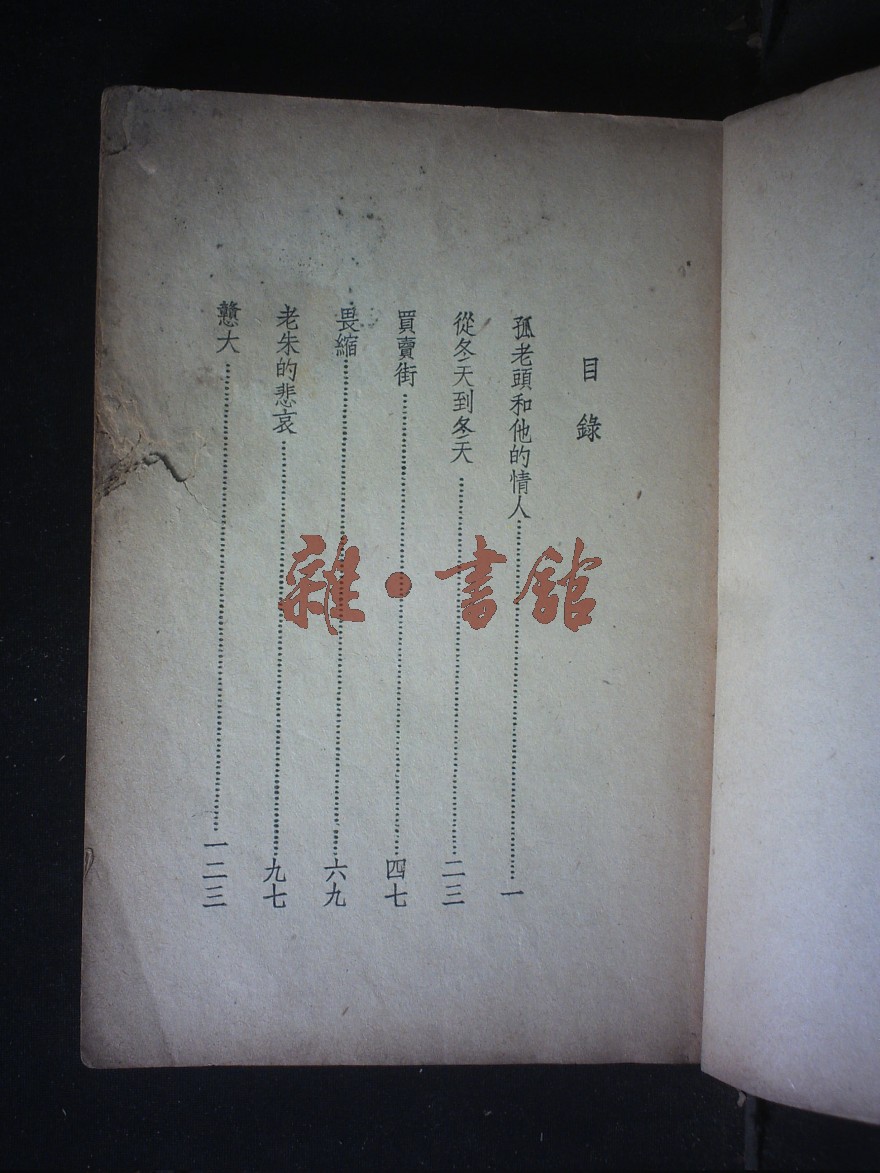 目錄
孤老頭和他的情人……一
從冬天到冬天……二三
買賣街……四七
畏縮……六九
老朱的悲哀……九七
戆大……一二三
雜·書館